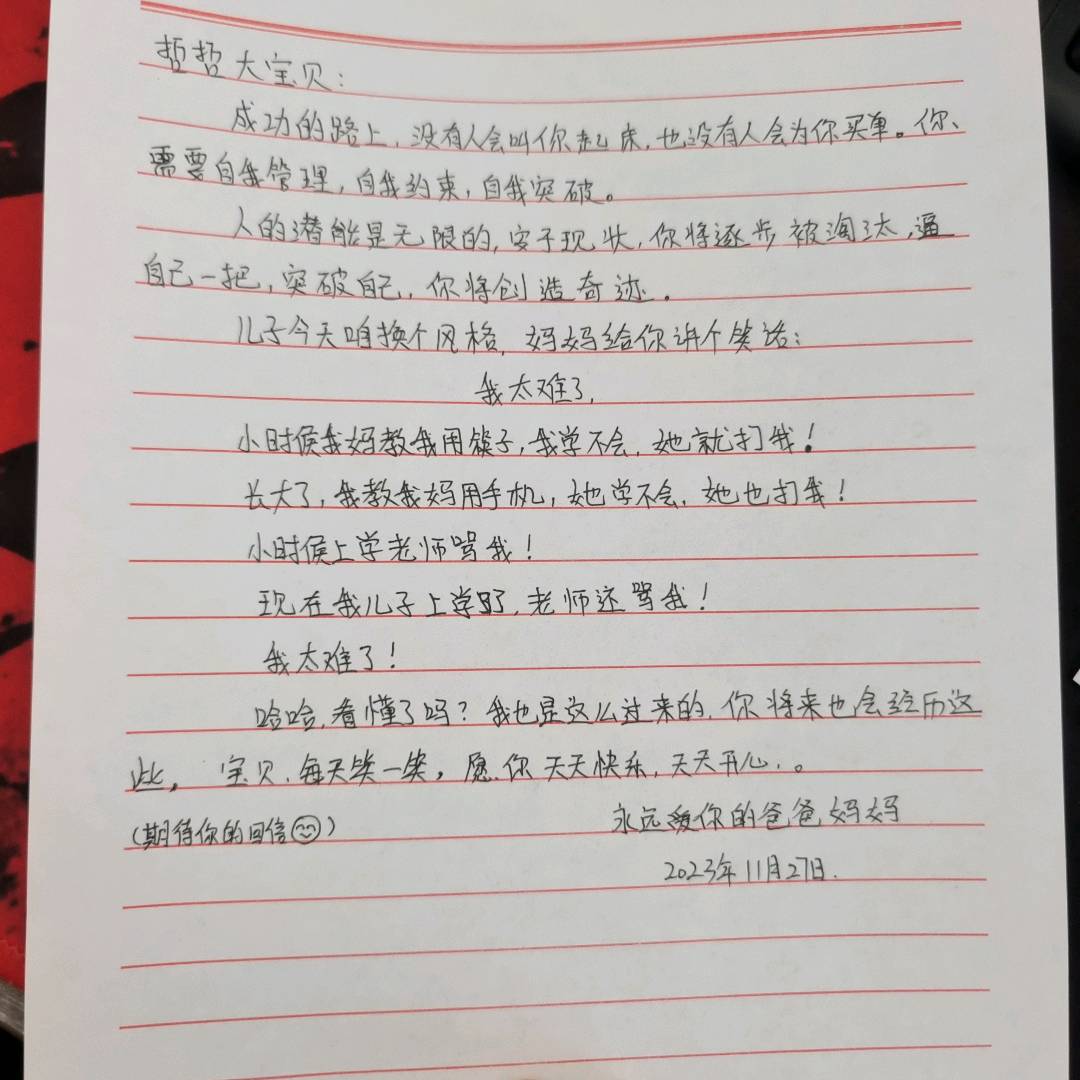 哲哲大宝贝：
成功的路上，没有人会叫你起床，也没有人会为你买单。你、
需要自我管理，自我约束，自我突破。
人的潜能是无限的，安于现状，你将逐步被淘汰，逼
自己一把，突破自己，你将创造奇迹。
儿子今天咱换个风格，妈妈给你讲个笑话：
我太难了，
小时候我妈教我用筷子，我学不会，她就打我！
长大了，我教我妈用手机，她学不会，她也打我！
小时候上学老师骂我！
现在我儿子上学了，老师还骂我！
我太难了！
哈哈，看懂了吗？我也是这么过来的，你将来也会经历这
些，宝贝，每天笑一笑，愿你天天快乐，天天开心。
(期待你的回信😊)
永远爱你的爸爸妈妈
2023年11月27日.